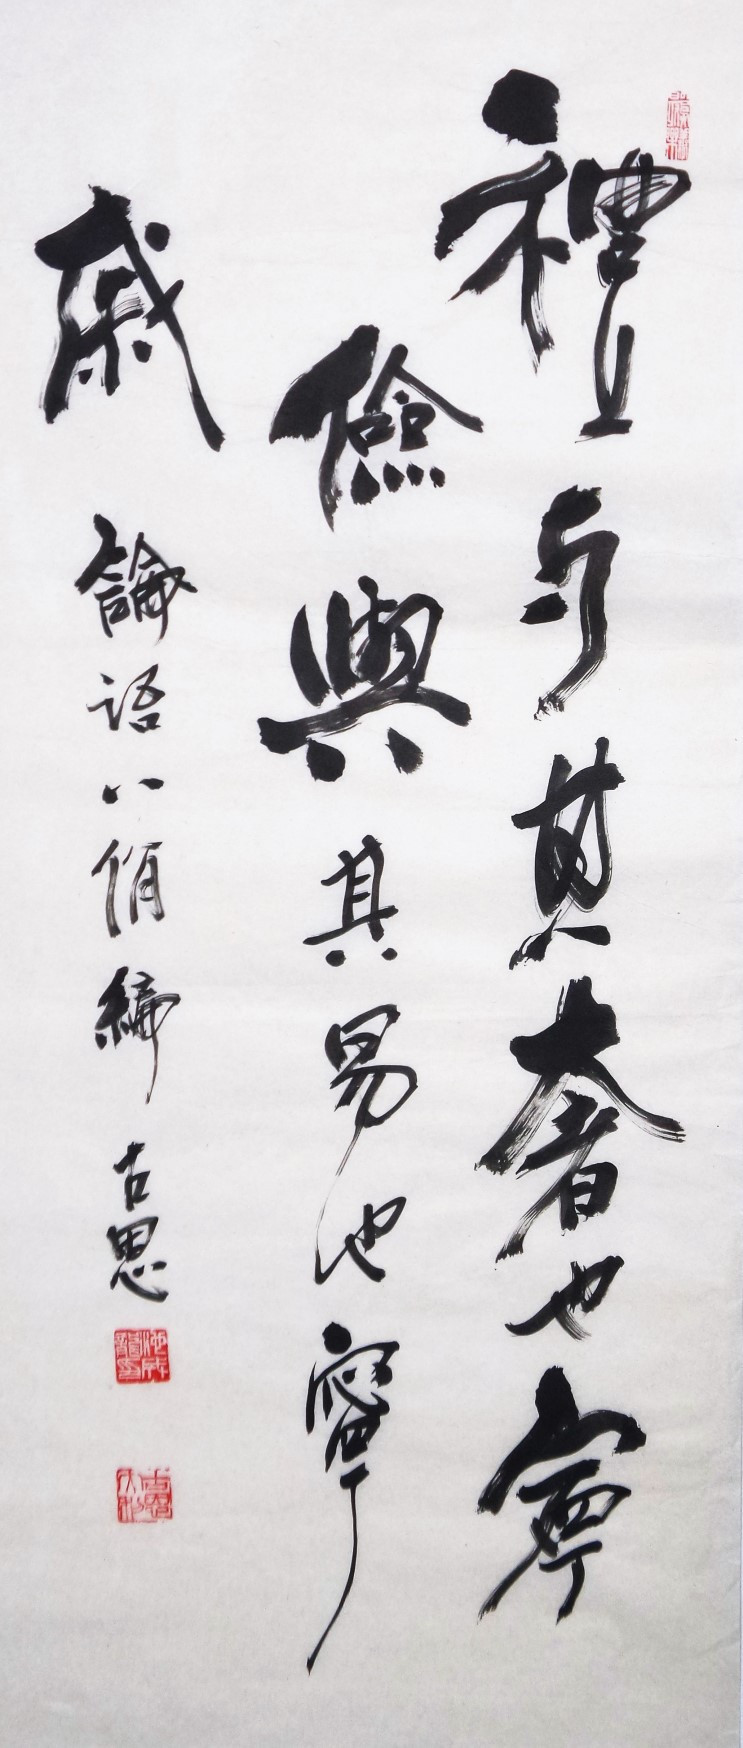 禮与其奢也寧
儉與其易也寧
戚
論語八佾篇
古思